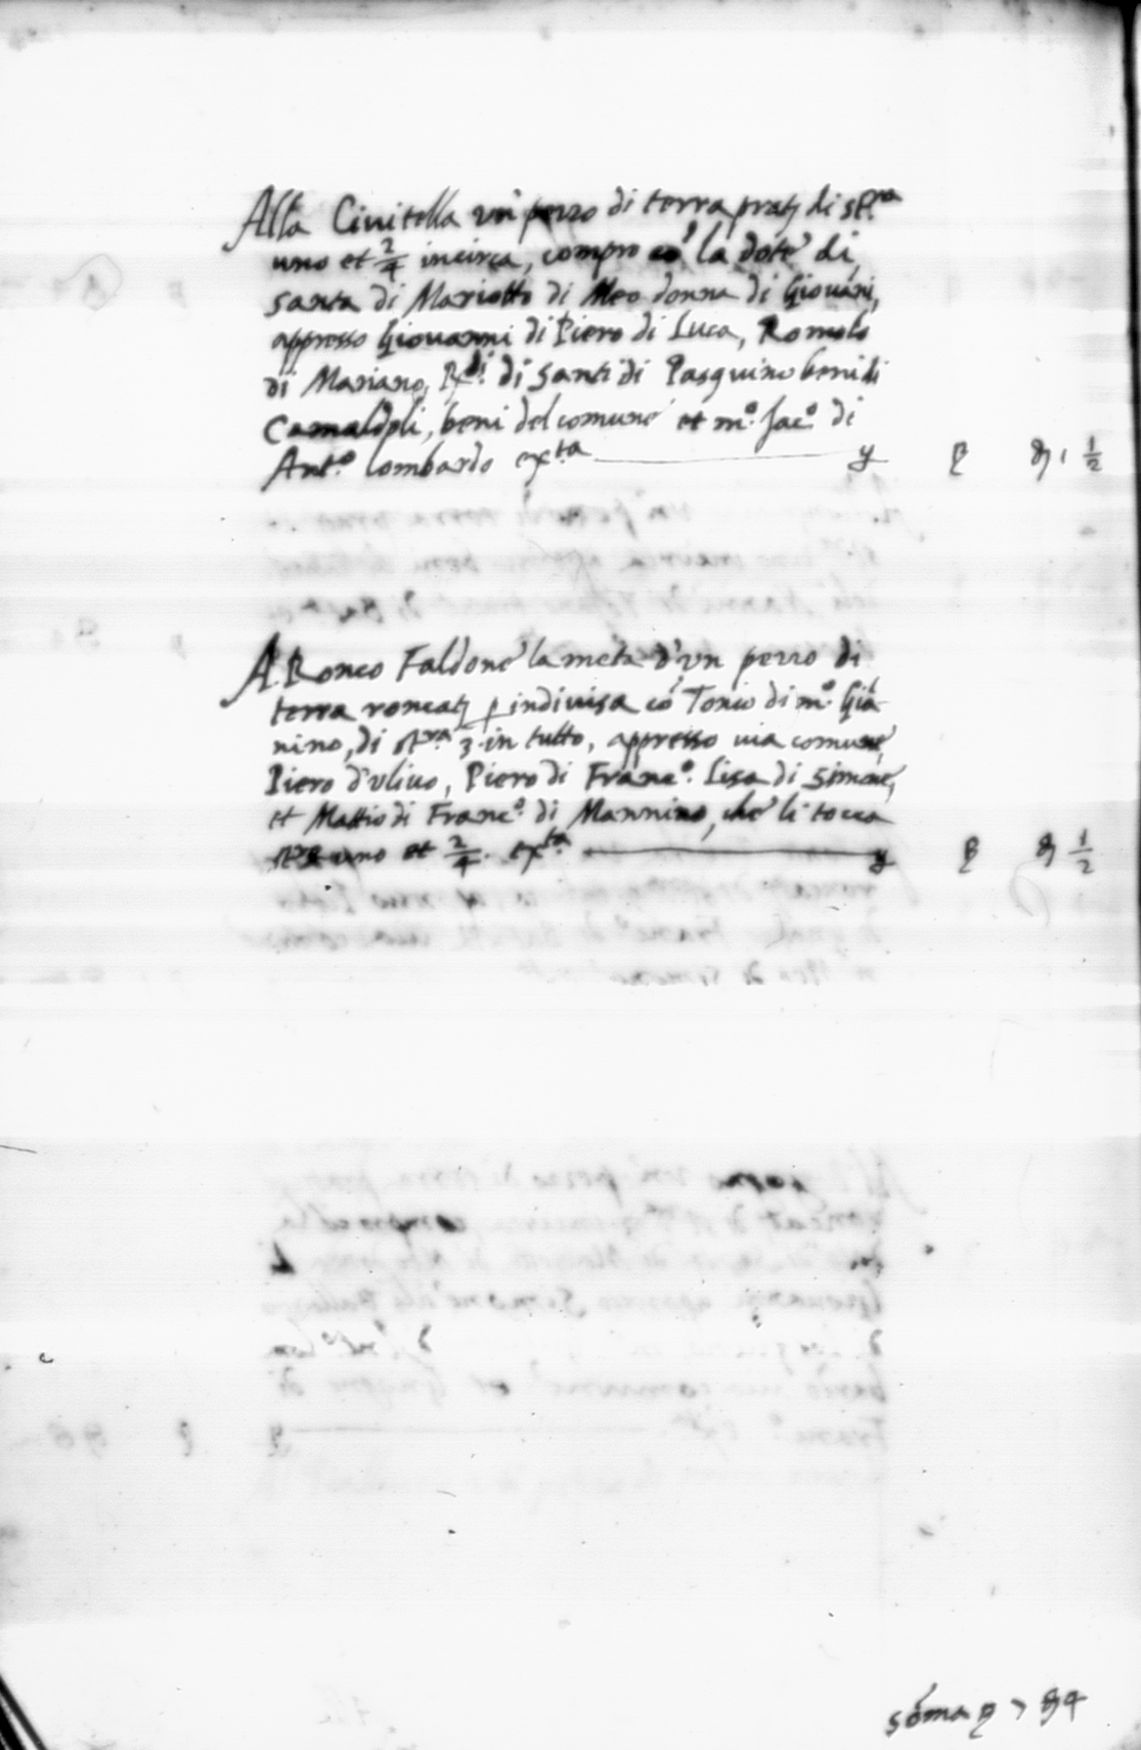 Alla Ciuitella un pezzo di terra prat. di st.ra
uno et 2/4 incirca, compro co' la dote di
santa di Mariotto di Meo donna di Giouāni,
appresso Giouanni di Piero di Luca, Romolo
di Mariano, Rdi. di Santi di Pasquino beni di
Camaldoli, beni del comune et m.o Jac.o di
Ant.o lombardo ex.ta 1 1/2
A Ronco Faldone la meta d'un pezzo di
terra roncat. p indiuisa co' Tonio di m.o Giā
nino, di st.ra 3. in tutto, appresso uia comune,
Piero d'uliuo, Piero di Franc.o Lisa di Simone,
et Mattio di Franc.o di Mannino, che li tocca
uno et 2/4. ex.ta 1/2
sōma 7 4